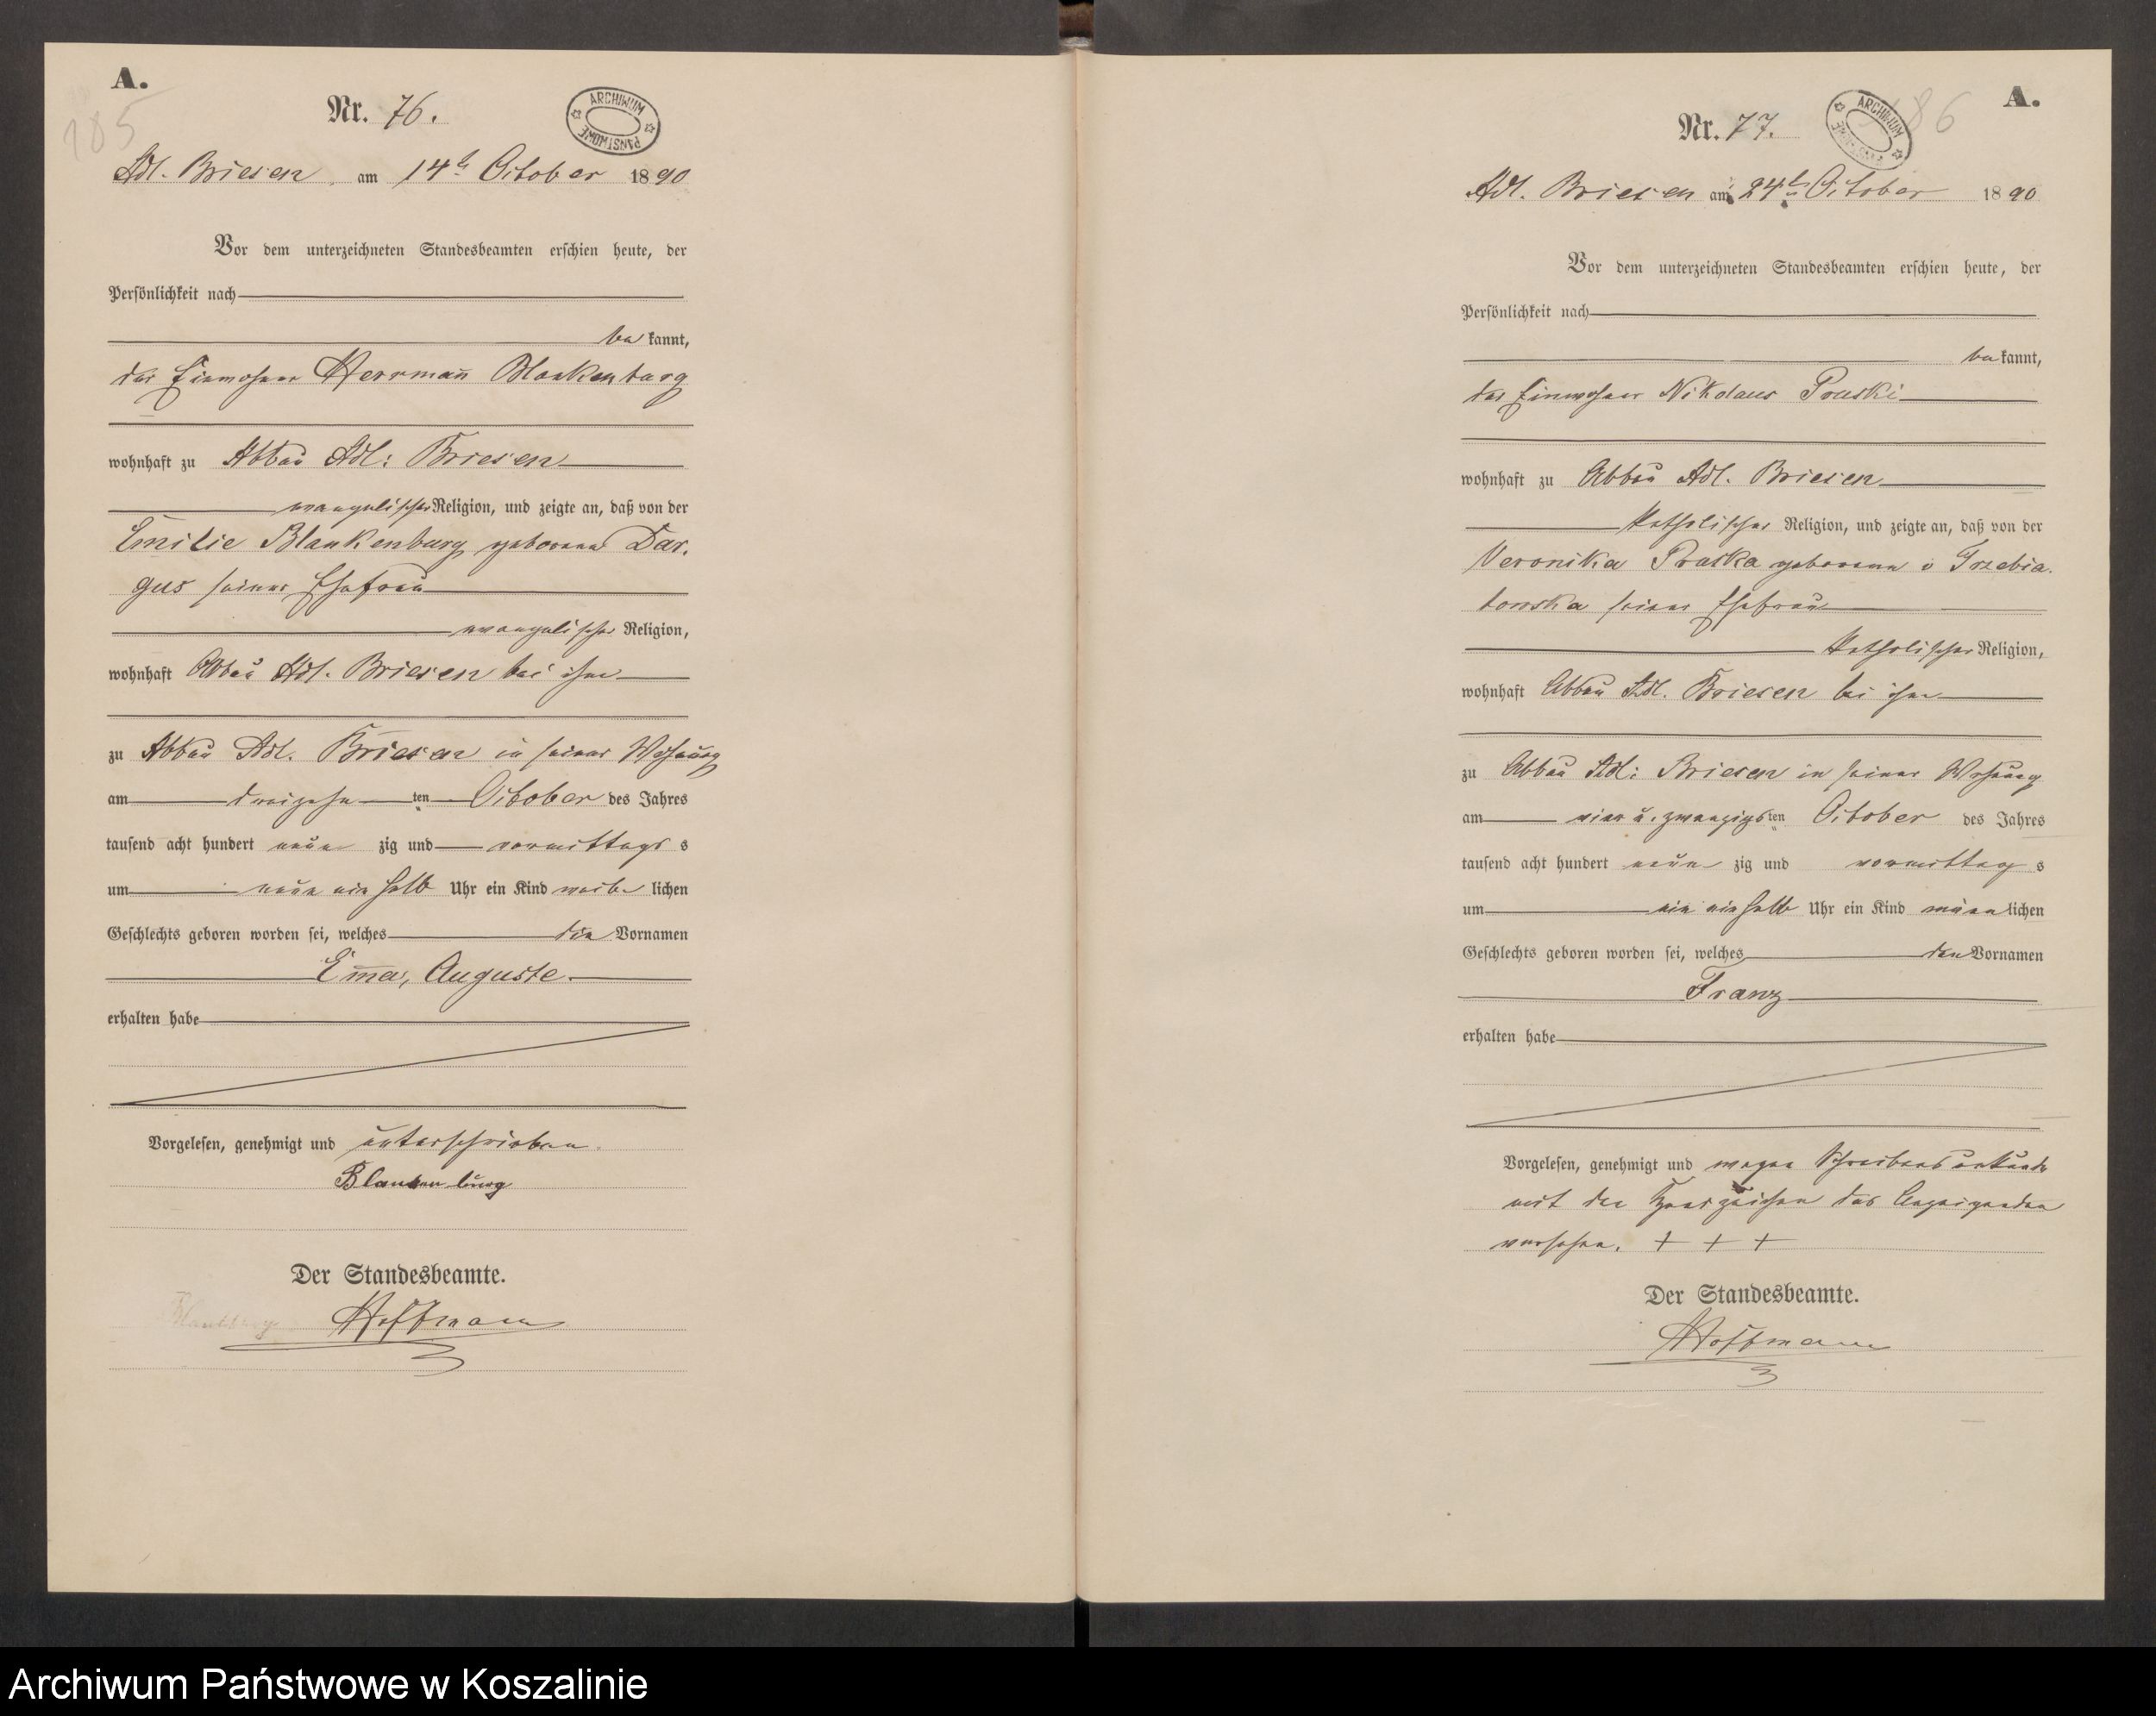 A.
185
Nr. 76.
ARCHIWUM PAŃSTWOWE
Adl. Briesen am 14te October 1890
Vor dem unterzeichneten Standesbeamten erschien heute, der
Persönlichkeit nach
bekannt,
der Einwohner Herrmann Blankenburg
wohnhaft zu Abbau Adl. Briesen
evangelischer Religion, und zeigte an, daß von der
Emilie Blankenburg geborene Dar.
gus seiner Ehefrau
evangelischer Religion,
wohnhaft Abbau Adl. Briesen bei ihm
zu Abbau Adl. Briesen in seiner Wohnung
am dreizehnten October des Jahres
tausend acht hundert neunzig und vormittags s
um neun ein halb Uhr ein Kind weiblichen
Geschlechts geboren worden sei, welches die Vornamen
Emma, Auguste
erhalten habe
Vorgelesen, genehmigt und unterschrieben.
Blankenburg
Der Standesbeamte.
Hoffmann
A.
186
Nr. 77.
ARCHIWUM PAŃSTWOWE
Adl. Briesen am 24te October 1890
Vor dem unterzeichneten Standesbeamten erschien heute, der
Persönlichkeit nach
bekannt,
der Einwohner Nikolaus Pruski
wohnhaft zu Abbau Adl. Briesen
katholischer Religion, und zeigte an, daß von der
Veronika Pruska geborene v Trzebia.
towska seiner Ehefrau
katholischer Religion,
wohnhaft Abbau Adl. Briesen bei ihm
zu Abbau Adl: Briesen in seiner Wohnung
am vier u. zwanzigsten October des Jahres
tausend acht hundert neunzig und vormittags
um ein ein halb Uhr ein Kind männlichen
Geschlechts geboren worden sei, welches den Vornamen
Franz
erhalten habe
Vorgelesen, genehmigt und wegen Schreibensunkunde
mit den Handzeichen des Anzeigenden
versehen. + + +
Der Standesbeamte.
Hoffmann
Archiwum Państwowe w Koszalinie